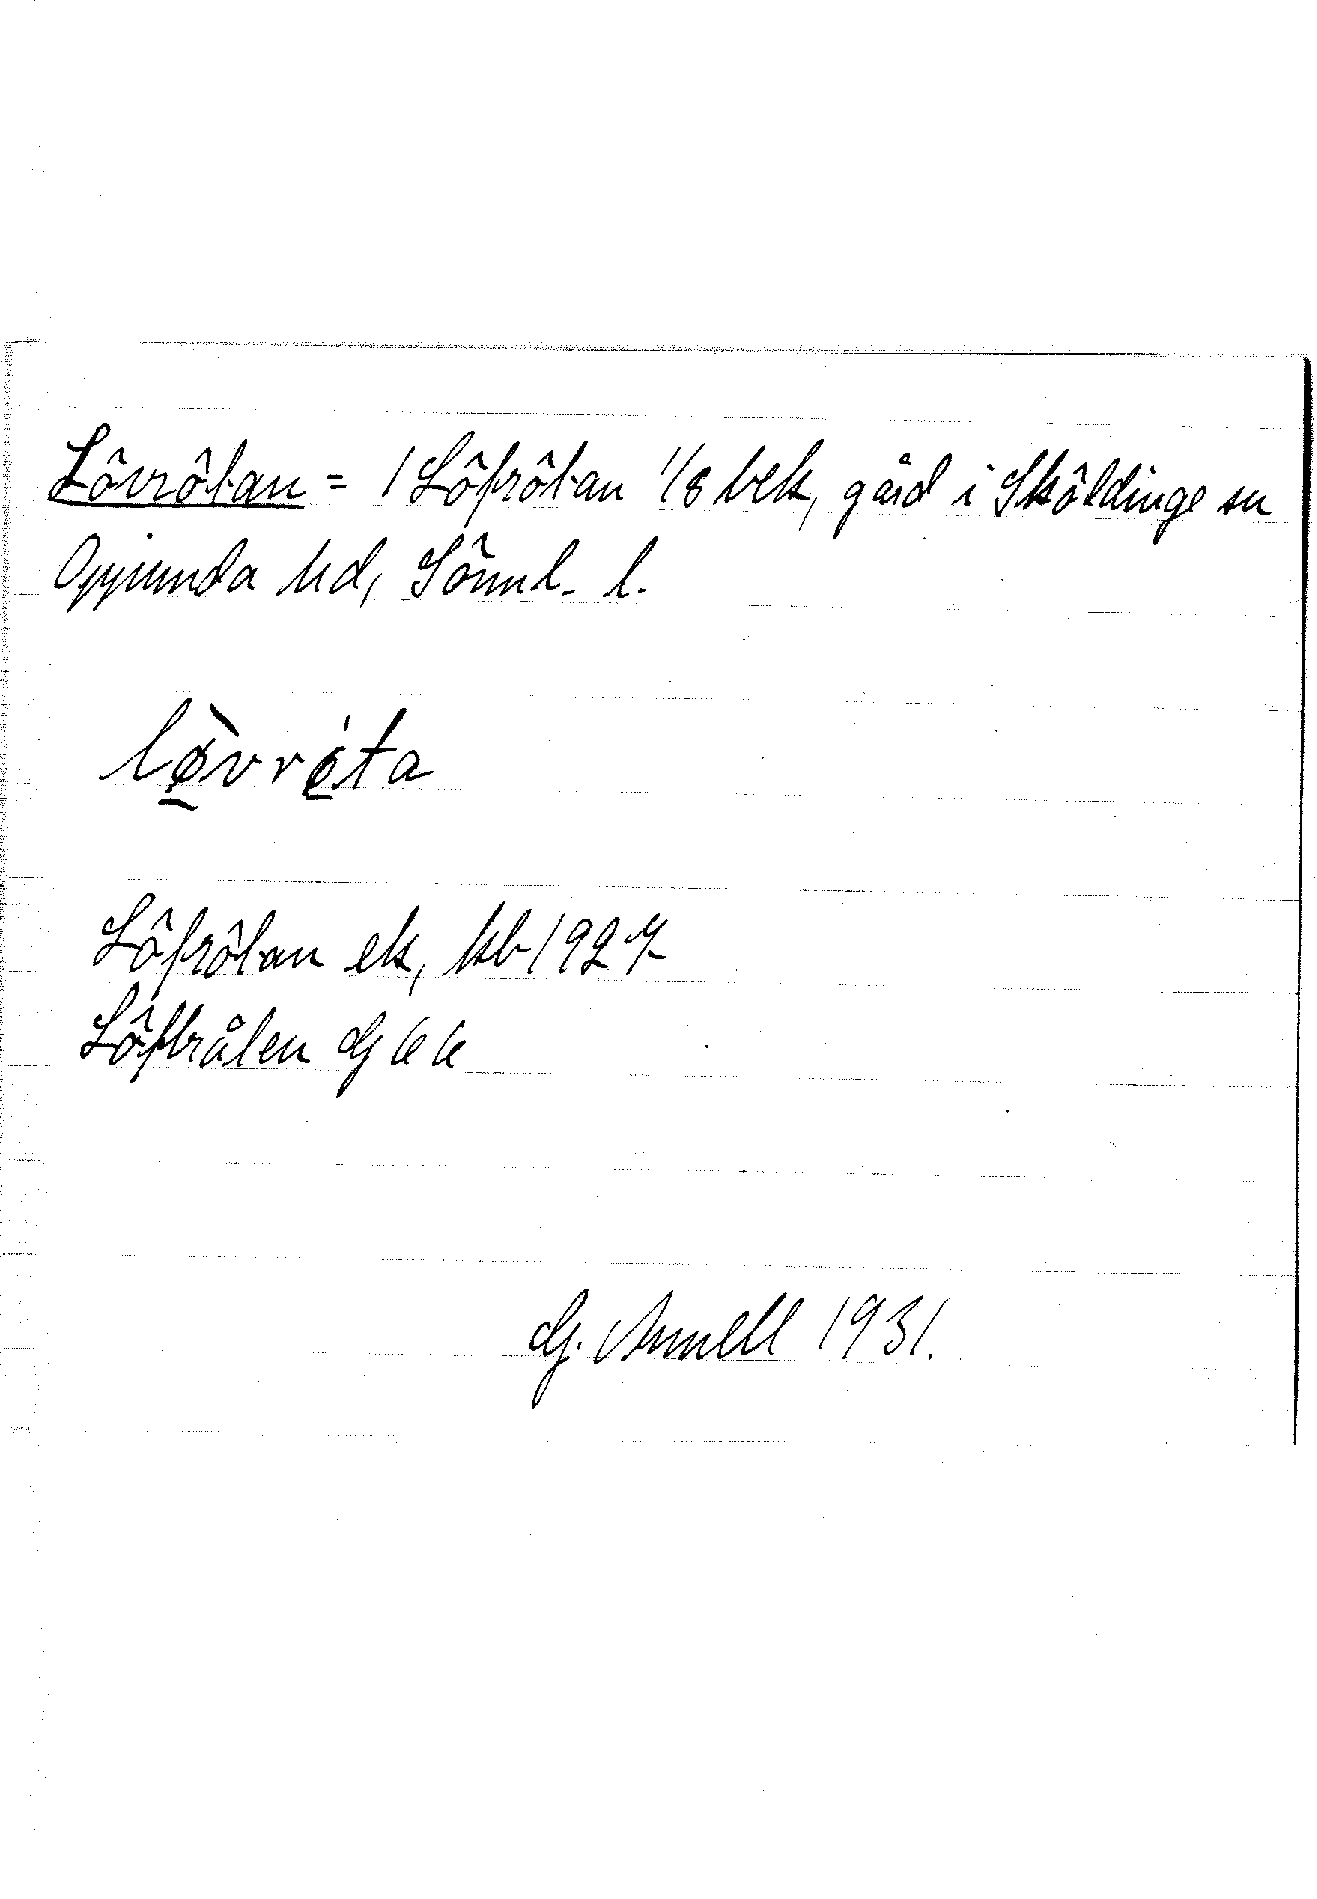 Lövrötan = 1 Löfrötan 1/8 bek, gård i Sköldinge sn
Oppunda hd, Sörml. l.
lø̀vrǿta
Löfrötan ek, kb 1927
Löftråten GEK
G. Annell 1931.